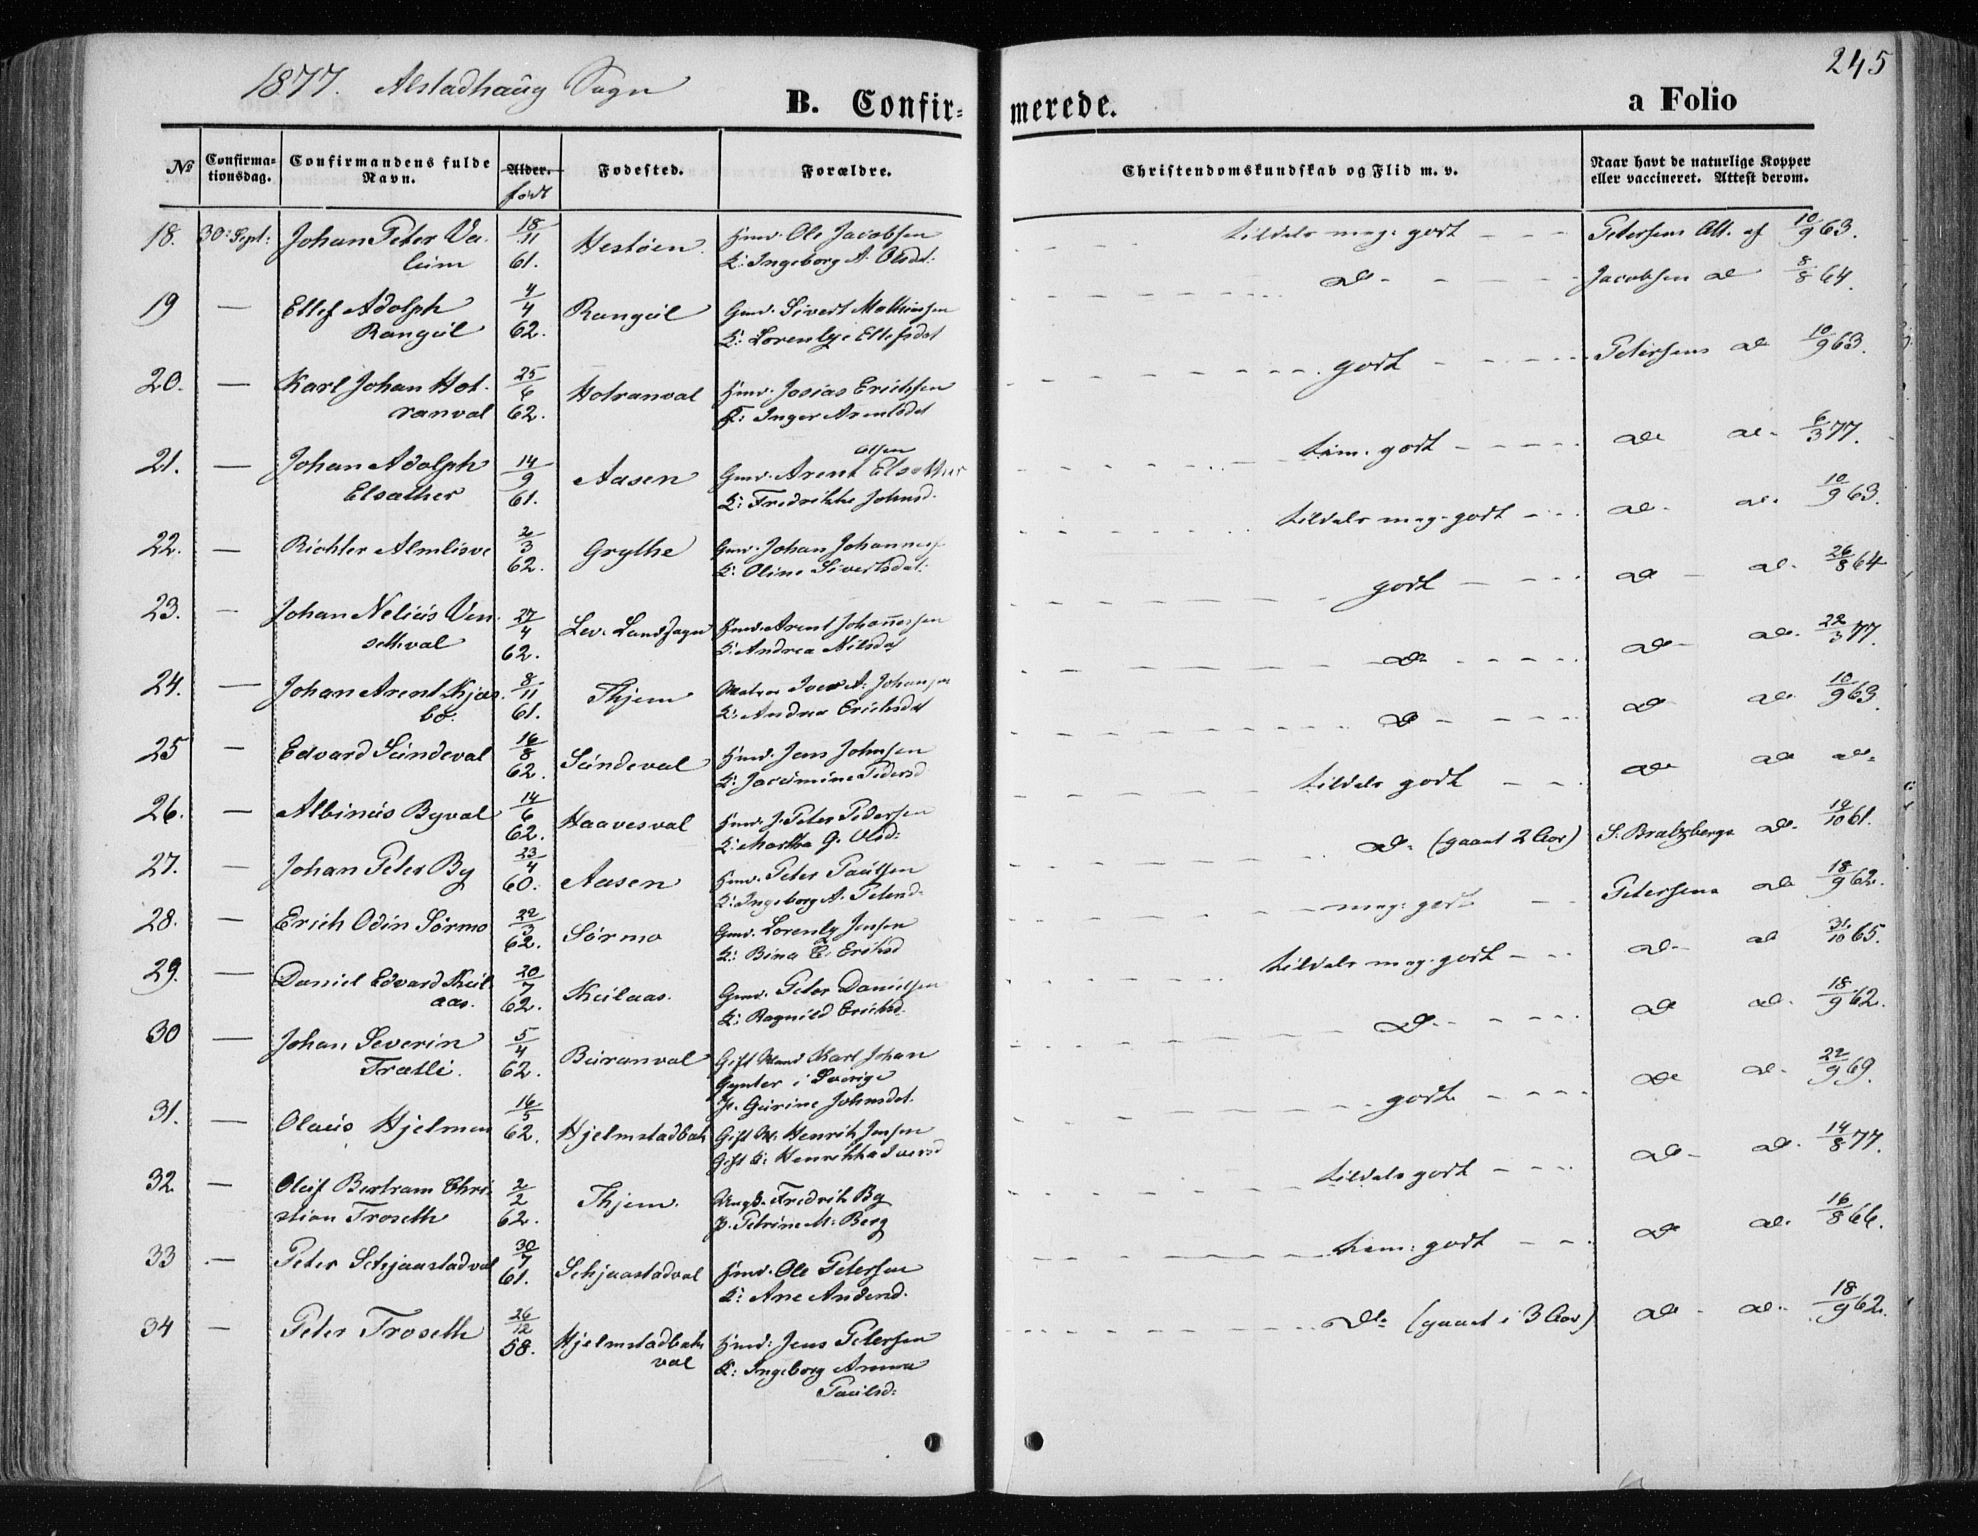 1877. Alstadhaug Sogn
245
B. Confir=
merede.
a Folio
No
Confirma=
tionsdag.
Confirmandens fulde
Navn.
Alder.
født
Fødested.
Forældre.
Christendomskundskab og Flid m. v.
Naar havt de naturlige Kopper
eller vaccineret. Attest derom.
18. 30: Sept: Johan Peter Va- 18/11 Hestöen. Hmd. Ole Jacobsen tildels meg: godt Petersens Att. af 10/9 63.
lum 61. K: Ingeborg A: Olsdt:
19 — Ellef Adolph 4/4 Rangul Gmd. Sivert Mathiassen do Jacobsen do 8/8 64.
Rangul 62. K: Ellefsdat
20. — Karl Johan Hot- 25/6 Hotranval Hmd. Josias Erichsen godt Petersens do 10/9 63.
ranval 62. K: Inger Arentsdat
21. — Johan Adolph 14/9 Aasen Gmd. Arent Olsen Elsæther tem. godt do do 6/3 77.
Elsæther 61. K: Fredrikke Johnsd.
22. — Richter 2/3 Grythe Gmd. Johan tildels meg. godt do do 10/9 63.
62. K: Oline Sivertsdat:
23. — Johan Nelius Ven- 27/4 Lev. Landsogn Hmd. Arent Johannessen godt do do 26/8 64
sethval 62. K: Andrea Nilsdat
24. — Johan Arent 8/11 Thjem Iver A: Johansen do do do 22/3 77.
bö. 61. K: Andrea Erichsdat
25 — Edvard Sundeval 16/8 Sundeval Hmd. Jens Johnsen do do do 10/9 63.
62. K: Jacomine Pedersd
26. — Albinus Byval 14/6 Haavesval Hmd. J. Peter Pedersen tildels godt do do do
62. K: Martha G. Olsd:
27. — Johan Peter By 23/4 Aasen Hmd. Peter Paulsen do (gaaet 2 Aar) S. Bratsbergs do 19/10 61.
60. K: Ingeborg A. Petersd:
28. — Erich Odin Sörmo 22/3 Sörmo Gmd. Lorents Jensen meg: godt Petersens do 18/9 62.
62. K: Bina E. Eriksd
29. — Daniel Edvard Skul 20/7 Skulaas. Gmd. Peter Danielsen tildels meg: godt do do 31/10 65.
aas. 62. K: Ragnild Erichsd.
30 — Johan Severin 5/4 Buranval Gift Mand Karl Johan do do do 18/9 62.
Trætli. 62. i Sverige
P. Gurine Johnsdat.
31. — Olaus Hjelmen 16/5 Hjelmstadbak Gift M. Henrik Jensen godt do do 22/9 69.
62. Gift K: Henrikka Iversd
32 — Oluf Bertram Chri- 2/2 Thjem. Ungk. Fredrik By tildels godt do do 14/8 77.
stian Troseth 62. P. Petrine M: Berg
33 — Peter Schjaastadval 30/7 Schjaastadval Hmd. Ole Petersen tem: godt do do 16/8 66.
61. K: Ane Andersd.
34 — Peter Troseth 26/12 Hjelmstadbak Hmd: Jens Petersen do (gaaet i 3 Aar) do do 18/9 62.
58. val K: Ingeborg Anna
Paulsd: